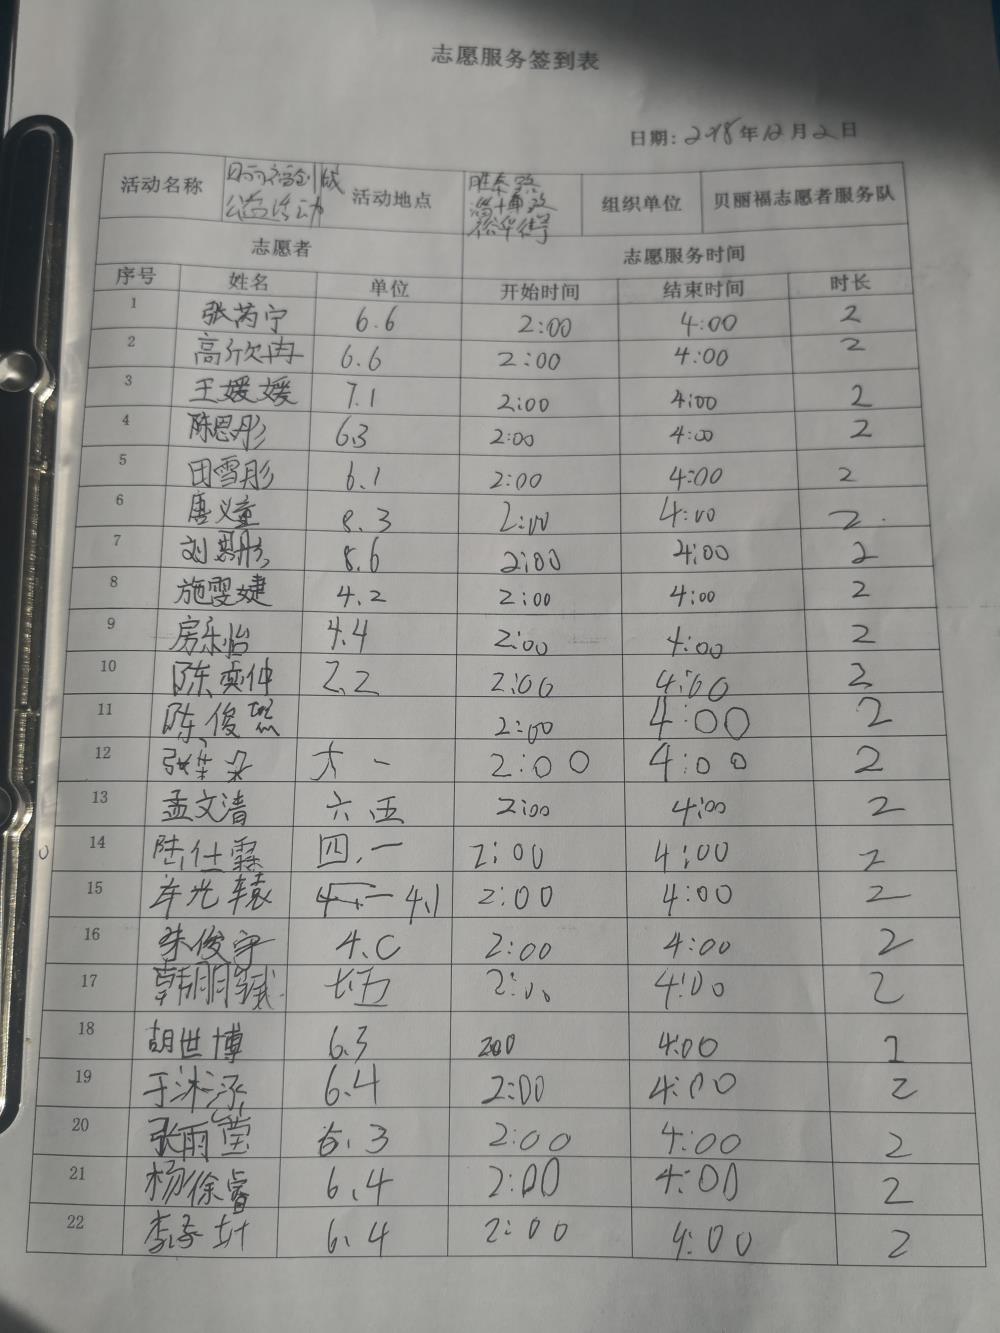 志愿服务签到表
日期: 2018年12月2日
活动名称 创城 公益活动 活动地点 胜泰路 淄博路 裕华街 组织单位 贝丽福志愿者服务队
志愿者 志愿服务时间
序号 姓名 单位 开始时间 结束时间 时长
1 张芮宁 6.6 2:00 4:00 2
2 高欣冉 6.6 2:00 4:00 2
3 王媛媛 7.1 2:00 4:00 2
4 陈思彤 6.3 2:00 4:00 2
5 田雪彤 6.1 2:00 4:00 2
6 唐义童 8.3 2:00 4:00 2
7 刘 彤 8.6 2:00 4:00 2
8 施雯婕 4.2 2:00 4:00 2
9 房乐怡 4.4 2:00 4:00 2
10 陈奕仲 2.2 2:00 4:00 2
11 陈俊 2:00 4:00 2
12 张 朵 六一 2:00 4:00 2
13 孟文清 六.五 2:00 4:00 2
14 陆仕霖 四.一 2:00 4:00 2
15 车光辕 4.1 2:00 4:00 2
16 朱俊宇 4.0 2:00 4:00 2
17 韩朋 七五 2:00 4:00 2
18 胡世博 6.3 200 4:00 2
19 于沐泓 6.4 2:00 4:00 2
20 张雨莹 6.3 2:00 4:00 2
21 杨徐睿 6.4 2:00 4:00 2
22 李 轩 6.4 2:00 4:00 2